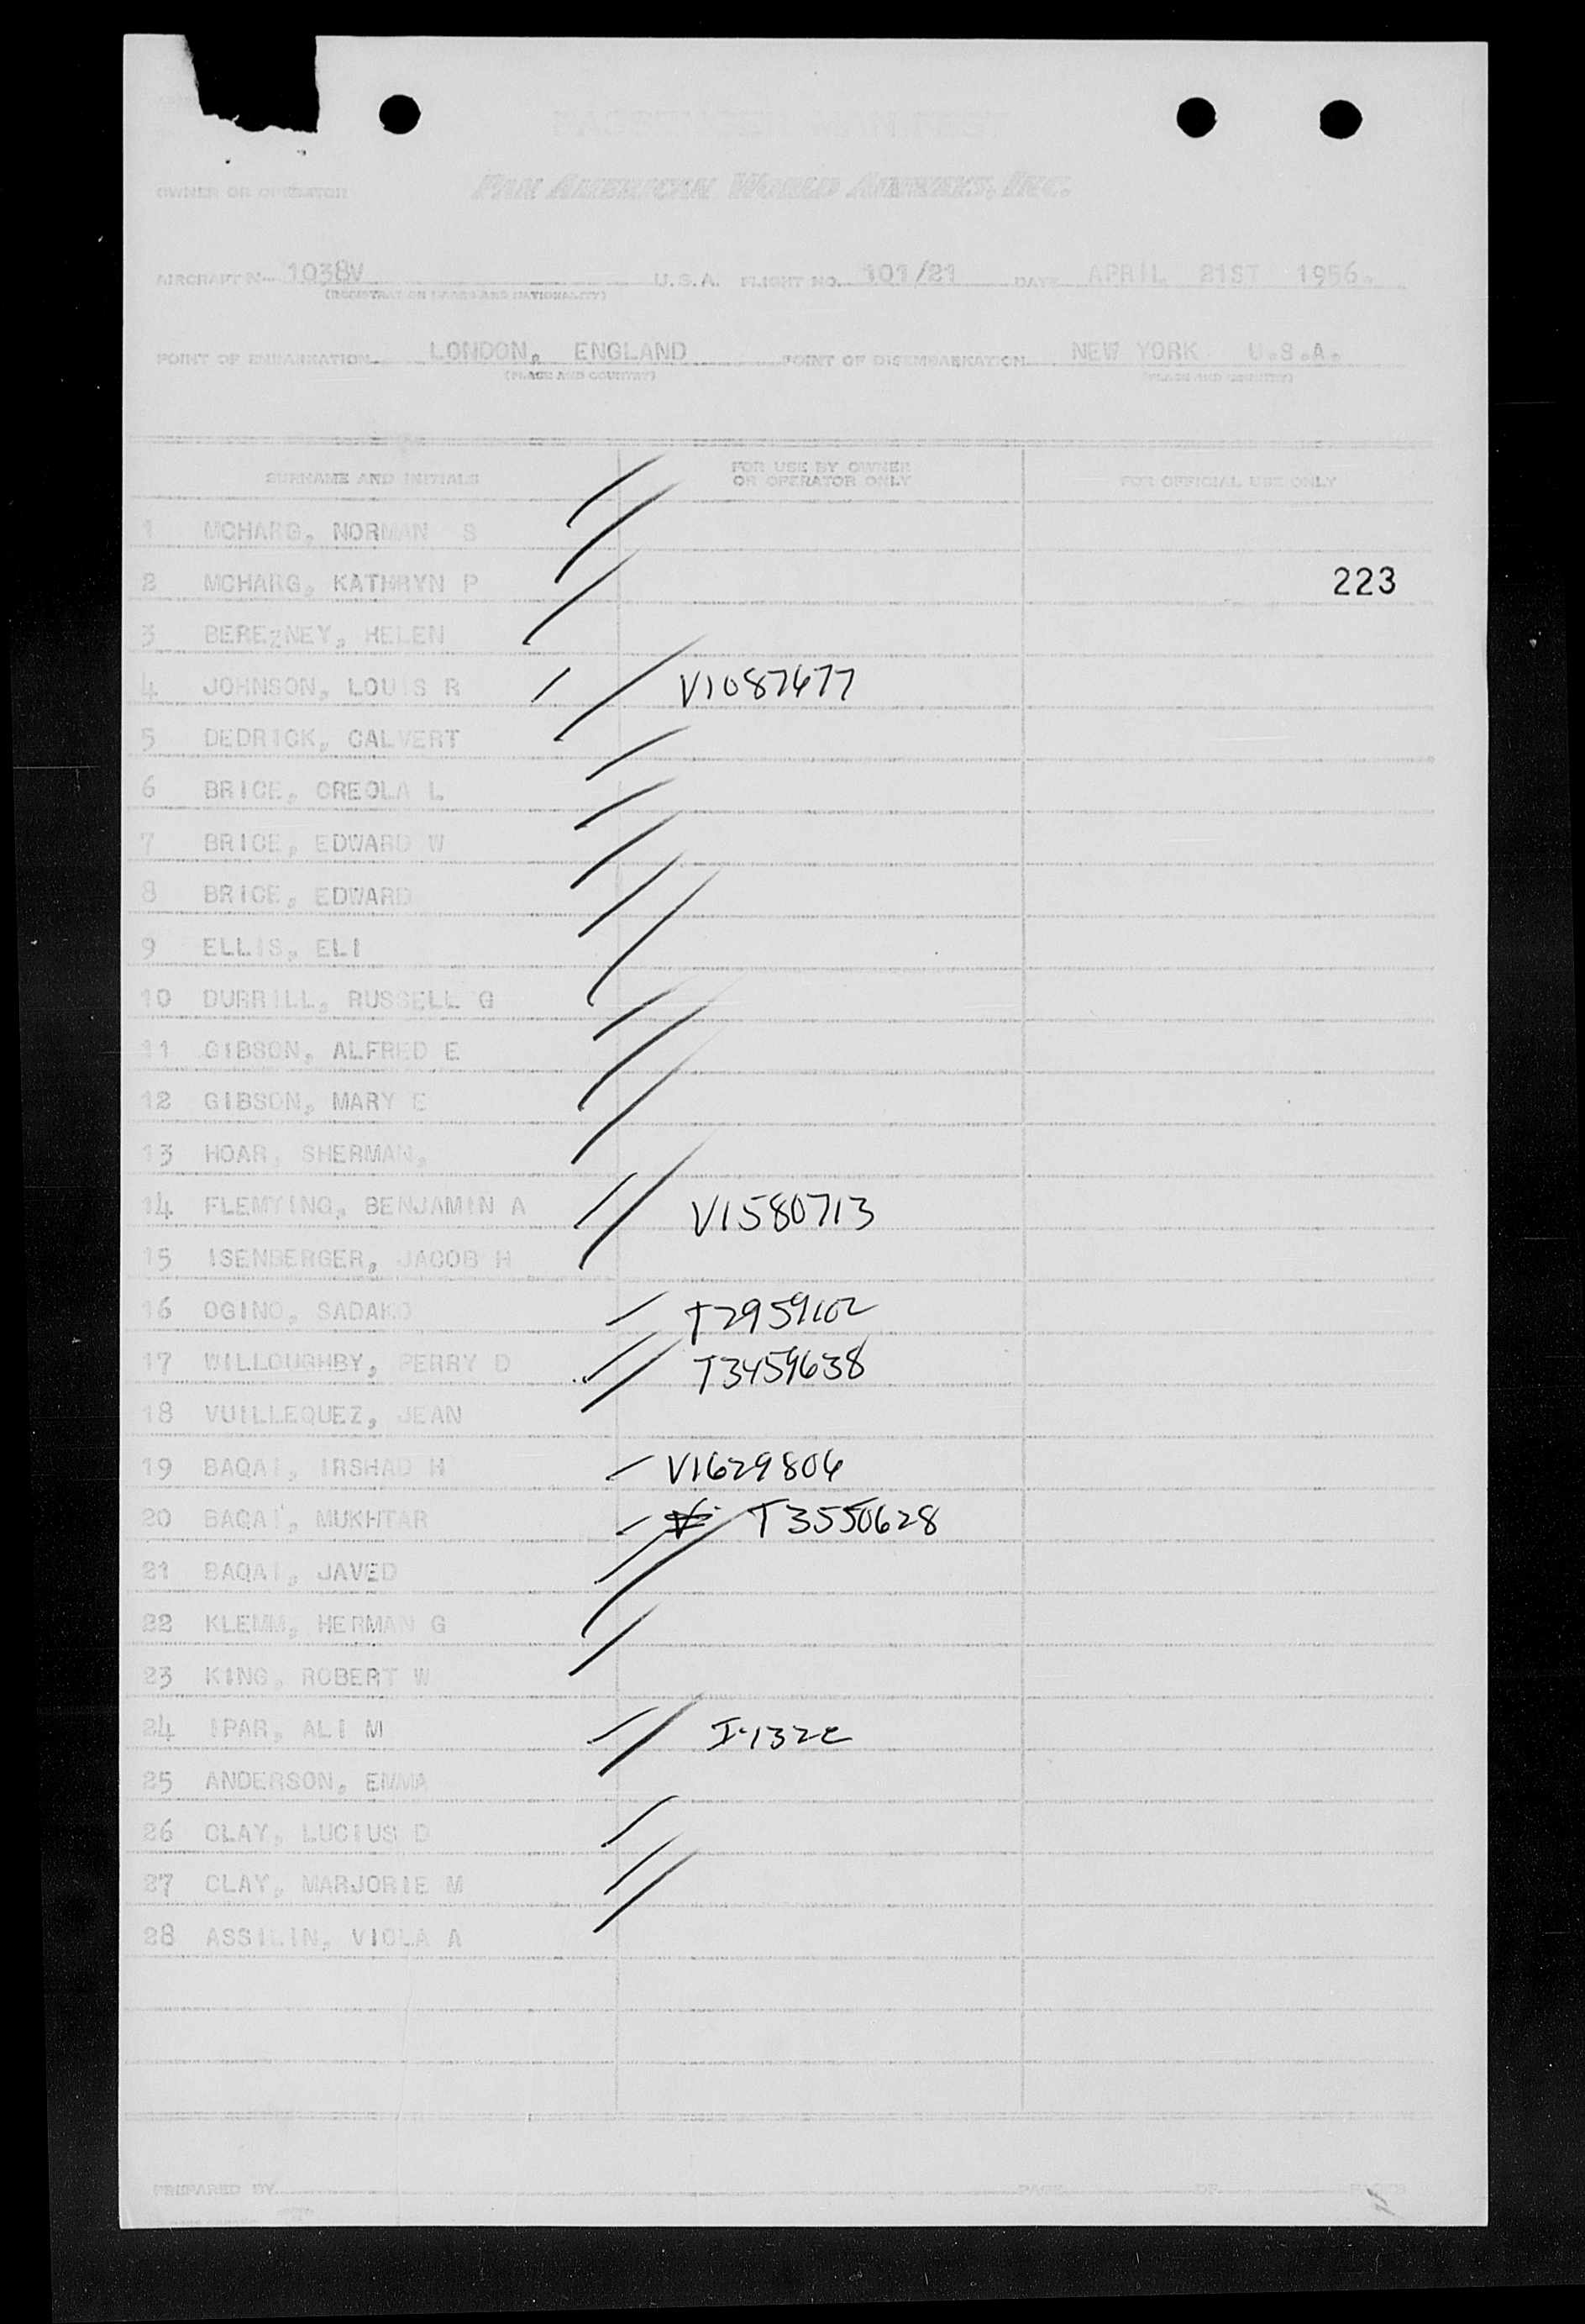 PASSENGER MANIFEST
OWNER OR OPERATOR PAN AMERICAN WORLD AIRWAYS, INC.
AIRCRAFT N- 1038V U.S.A. FLIGHT NO. 101/21 DATE APRIL 21ST 1956.
(REGISTRATION MARKS AND NATIONALITY)
POINT OF EMBARKATION LONDON, ENGLAND POINT OF DISEMBARKATION NEW YORK U.S.A.
(PLACE AND COUNTRY) (PLACE AND COUNTRY)
SURNAME AND INITIALS FOR USE BY OWNER OR OPERATOR ONLY FOR OFFICIAL USE ONLY
1 MCHARG, NORMAN S
2 MCHARG, KATHRYN P 223
3 BEREZNEY, HELEN
4 JOHNSON, LOUIS R V1087677
5 DEDRICK, CALVERT
6 BRICE, CREOLA L
7 BRICE, EDWARD W
8 BRICE, EDWARD
9 ELLIS, ELI
10 DURRILL, RUSSELL G
11 GIBSON, ALFRED E
12 GIBSON, MARY E
13 HOAR, SHERMAN,
14 FLEMYING, BENJAMIN A V1580713
15 ISENBERGER, JACOB H
16 OGINO, SADAKO T2959102
17 WILLOUGHBY, PERRY D T3459638
18 VUILLEQUEZ, JEAN
19 BAQAI, IRSHAD H V1629806
20 BAQAI, MUKHTAR T3550628
21 BAQAI, JAVED
22 KLEMM, HERMAN G
23 KING, ROBERT W
24 IPAR, ALI M I-1322
25 ANDERSON, EMMA
26 CLAY, LUCIUS D
27 CLAY, MARJORIE M
28 ASSILIN, VIOLA A
PREPARED BY PAGE OF PAGES